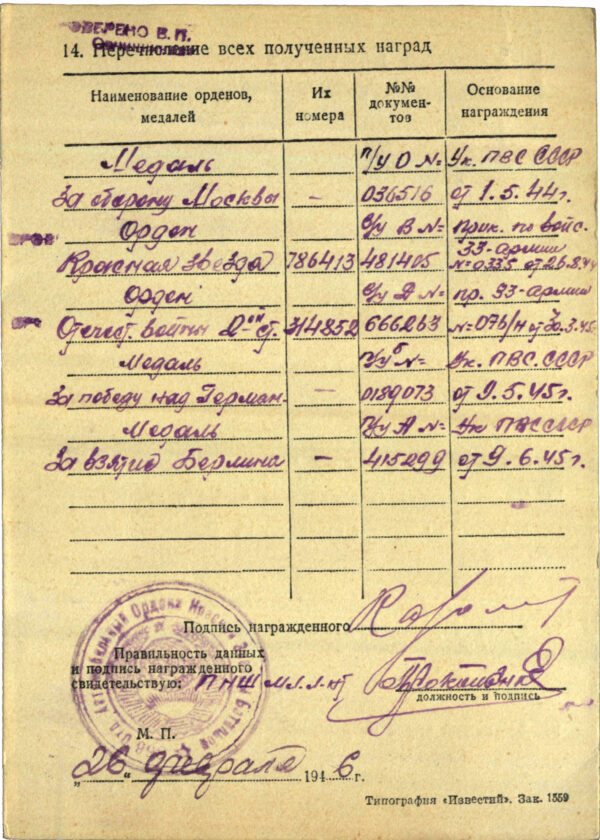 ВЕРЕНО В. П.
14. Перечисление всех полученных наград
Наименование орденов, медалей
Их номера
№№ документов
Основание награждения
Медаль п/у О №= Ук. ПВС СССР
За оборону Москвы — 036516 от 1.5.44г.
Орден с/у В №= Прик. по войс.
33-армии
Красная звезда 786413 481405 №=0335 от 26.8.44
Орден с/у Д №= пр. 33-армии
Отечест. войны 2-ой ст. 314852 666263 №=076/н от 30.3.45
Медаль П/у Б №= Ук. ПВС. СССР
За победу над Герман- — 0189073 от 9.5.45г.
Медаль П/у А №= Ук ПВС СССР
За взятие Берлина — 415299 от 9.6.45г.
Подпись награжденного
Правильность данных
и подпись награжденного
свидетельствую: ПНШ мл. л-нт
должность и подпись
М. П.
„26" февраля 1946 г.
Типография «Известий». Зак. 1559